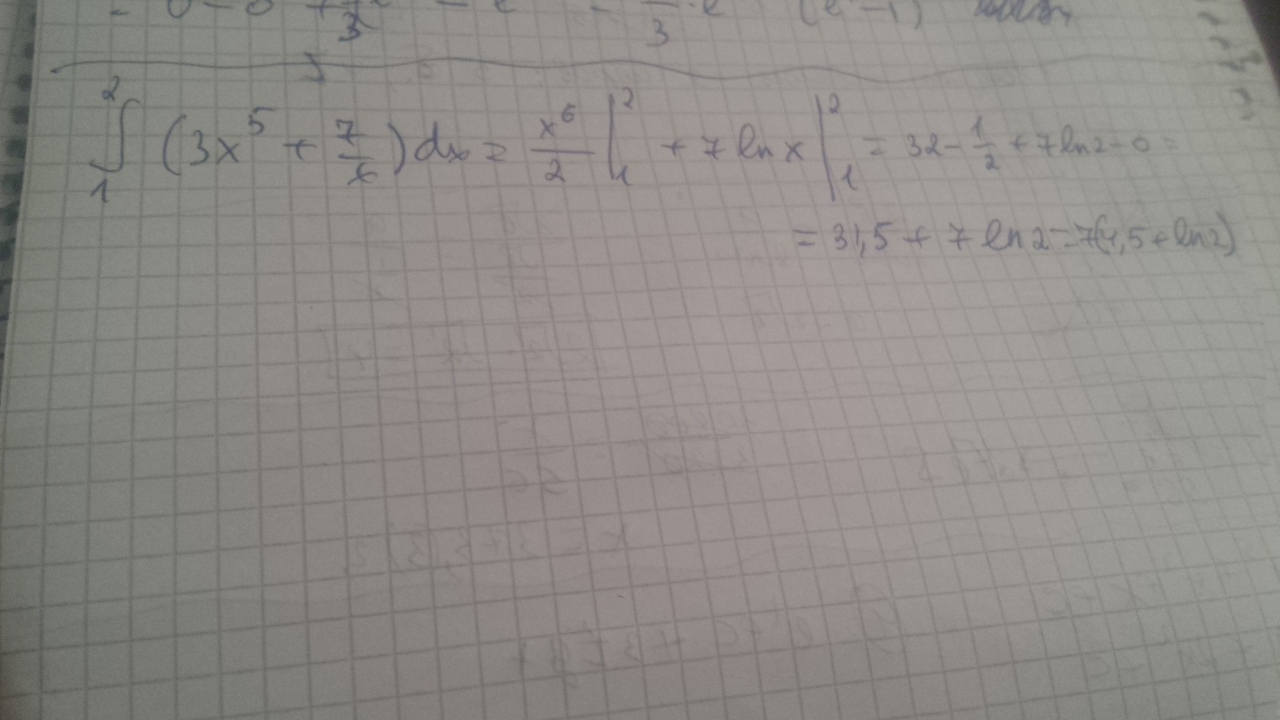 ∫₁² (3x⁵ + 7/x) dx = x⁶/2 |₁² + 7 ln x |₁² = 32 - 1/2 + 7 ln 2 - 0 =
= 31,5 + 7 ln 2 = 7(4,5 + ln 2)